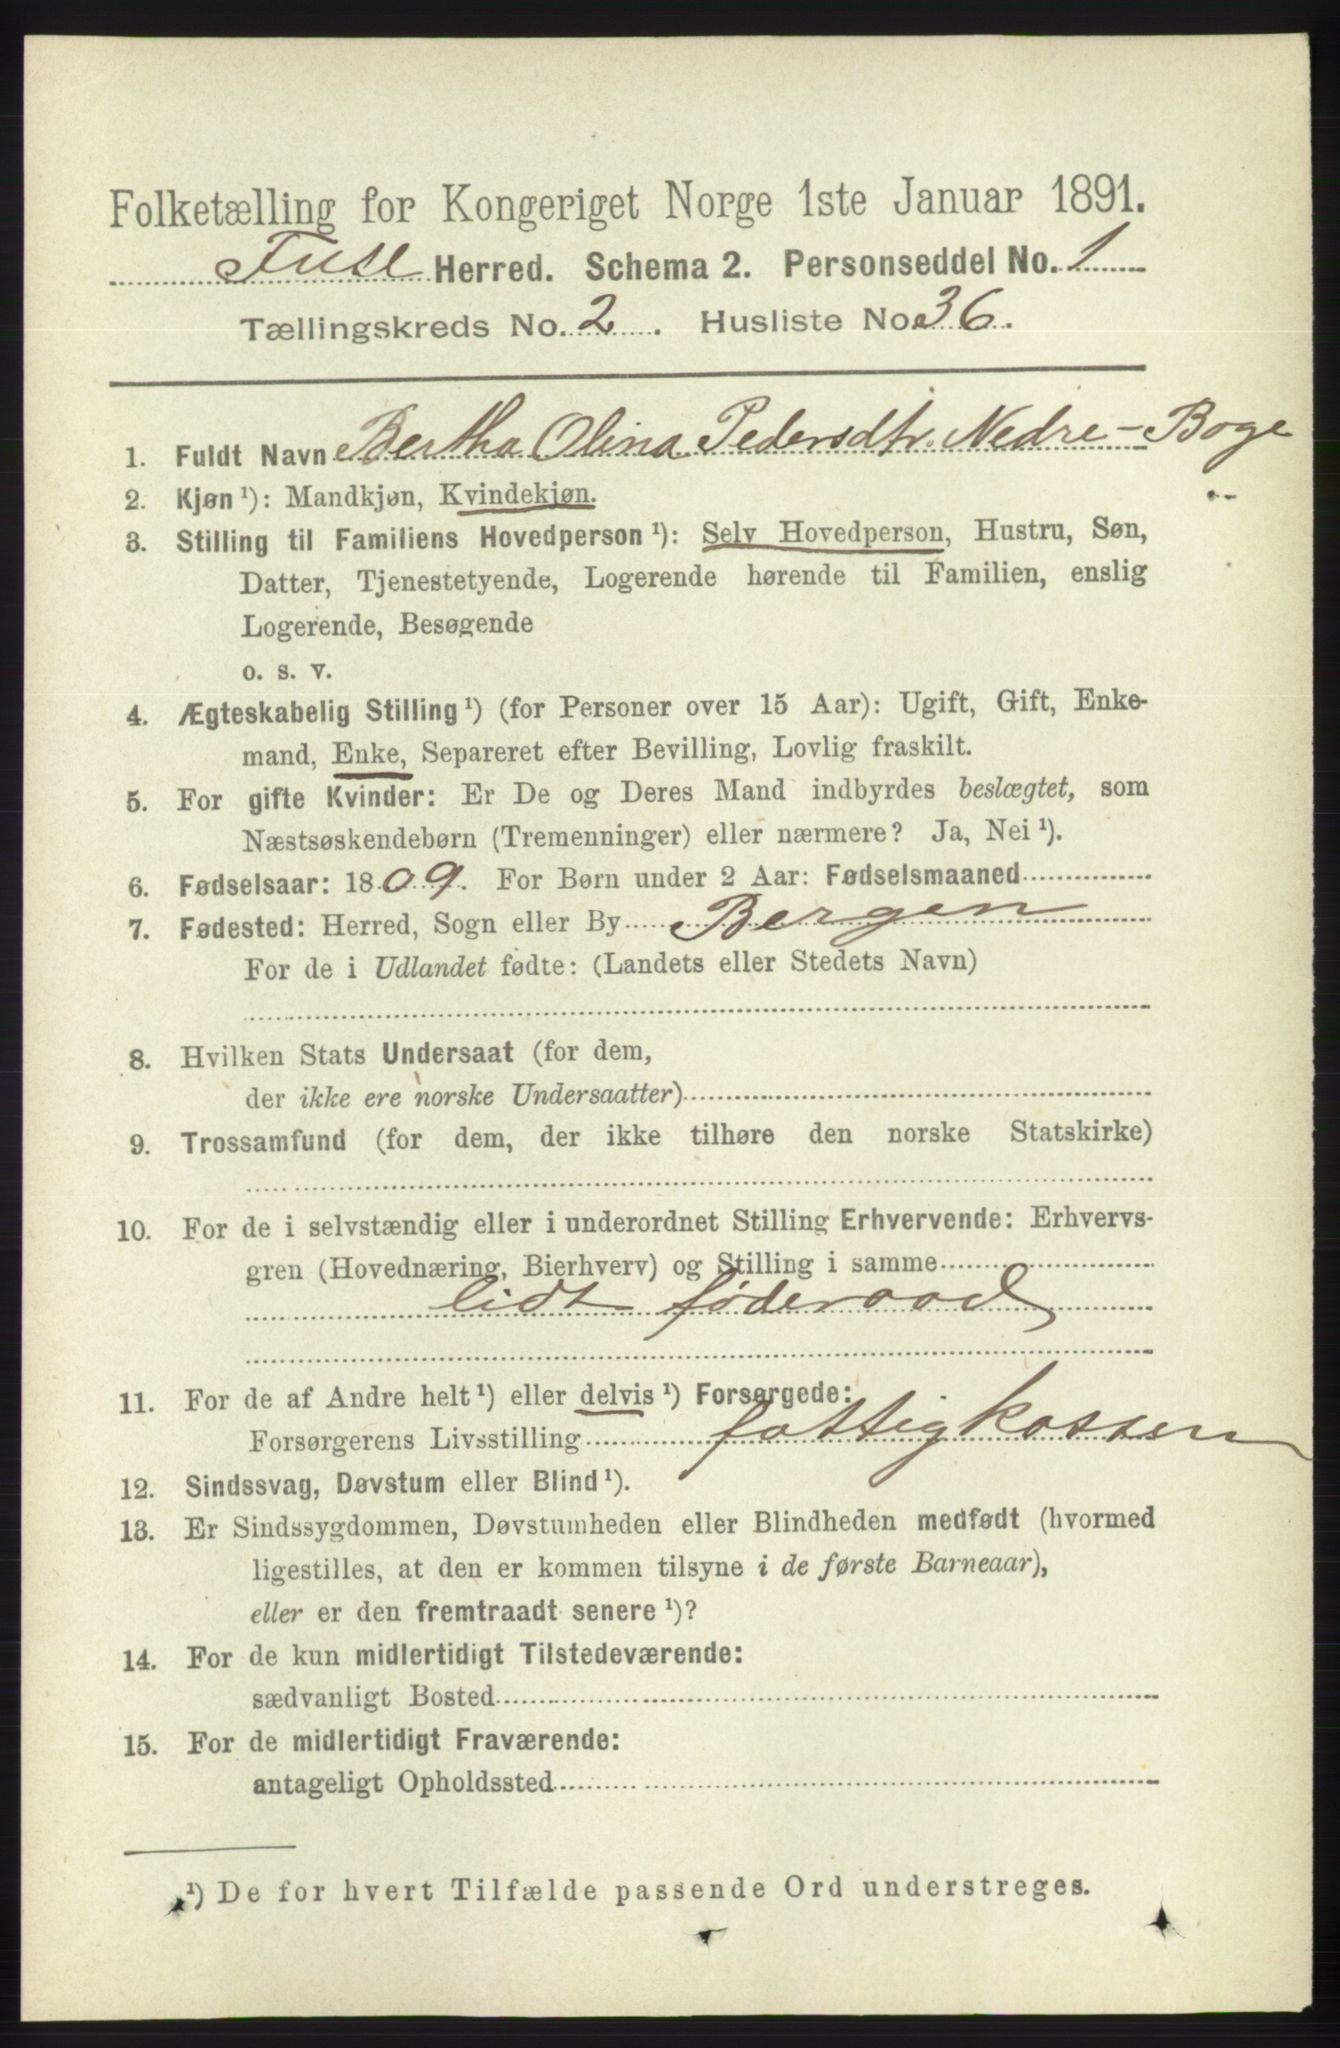 Folketælling for Kongeriget Norge 1ste Januar 1891.
Fuse Herred. Schema 2. Personseddel No. 1
Tællingskreds No. 2. Husliste No. 36.
1. Fuldt Navn Bertha Olina Pedersdtr. Nedre-Boge
2. Kjøn ¹): Mandkjøn, Kvindekjøn.
3. Stilling til Familiens Hovedperson ¹): Selv Hovedperson, Hustru, Søn,
Datter, Tjenestetyende, Logerende hørende til Familien, enslig
Logerende, Besøgende
o. s. v.
4. Ægteskabelig Stilling ¹) (for Personer over 15 Aar): Ugift, Gift, Enke-
mand, Enke, Separeret efter Bevilling, Lovlig fraskilt.
5. For gifte Kvinder: Er De og Deres Mand indbyrdes beslægtet, som
Næstsøskendebørn (Tremenninger) eller nærmere? Ja, Nei ¹).
6. Fødselsaar: 1809. For Børn under 2 Aar: Fødselsmaaned
7. Fødested: Herred, Sogn eller By Bergen
For de i Udlandet fødte: (Landets eller Stedets Navn)
8. Hvilken Stats Undersaat (for dem,
der ikke ere norske Undersaatter)
9. Trossamfund (for dem, der ikke tilhøre den norske Statskirke)
10. For de i selvstændig eller i underordnet Stilling Erhvervende: Erhvervs-
gren (Hovednæring, Bierhverv) og Stilling i samme
lidt føderaad
11. For de af Andre helt ¹) eller delvis ¹) Forsørgede:
Forsørgerens Livsstilling fattigkassen
12. Sindssvag, Døvstum eller Blind ¹).
13. Er Sindssygdommen, Døvstumheden eller Blindheden medfødt (hvormed
ligestilles, at den er kommen tilsyne i de første Barneaar),
eller er den fremtraadt senere ¹)?
14. For de kun midlertidigt Tilstedeværende:
sædvanligt Bosted
15. For de midlertidigt Fraværende:
antageligt Opholdssted
¹) De for hvert Tilfælde passende Ord understreges.